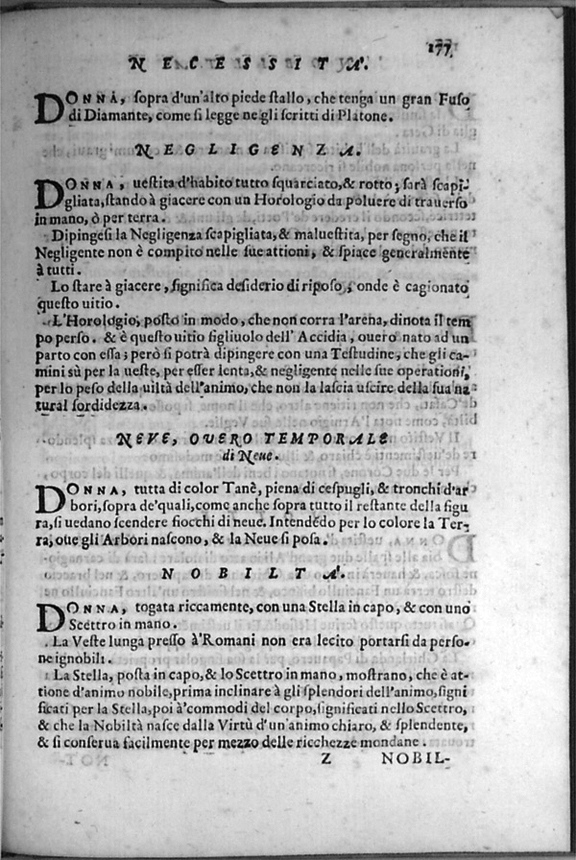 177
NECESSITA'.
DONNA, sopra d'un'alto piede stallo, che tenga un gran Fuso
di Diamante, come si legge negli scritti di Platone.
NEGLIGENZA.
DONNA, uestita d'habito tutto squarciato, & rotto; sarà scapi-
gliata, stando à giacere con un Horologio da poluere di trauerso
in mano, ò per terra.
Dipingesi la Negligenza scapigliata, & maluestita, per segno, che il
Negligente non è compito nelle sue attioni, & spiace generalmente
à tutti.
Lo stare à giacere, significa desiderio di riposo, onde è cagionato
questo uitio.
L'Horologio, posto in modo, che non corra l'arena, dinota il tem
po perso. & è questo uitio figliuolo dell' Accidia, ouero nato ad un
parto con essa; però si potrà dipingere con una Testudine, che gli ca-
mini sù per la ueste, per esser lenta, & negligente nelle sue operationi,
per lo peso della uiltà dell'animo, che non la lascia uscire della sua na
tural sordidezza.
NEVE, OVERO TEMPORALE
di Neue.
DONNA, tutta di color Tanè, piena di cespugli, & tronchi d'ar
bori, sopra de'quali, come anche sopra tutto il restante della figu
ra, si uedano scendere fiocchi di neue. Intendẽdo per lo colore la Ter-
ra, oue gli Arbori nascono, & la Neue si posa.
NOBILTA'.
DONNA, togata riccamente, con una Stella in capo, & con uno
Scettro in mano.
La Veste lunga presso à'Romani non era lecito portarsi da perso-
ne ignobili.
La Stella, posta in capo, & lo Scettro in mano, mostrano, che è at-
tione d'animo nobile, prima inclinare à gli splendori dell'animo, signi
ficati per la Stella, poi à'commodi del corpo, significati nello Scettro,
& che la Nobiltà nasce dalla Virtù d'un'animo chiaro, & splendente,
& si conserua facilmente per mezzo delle ricchezze mondane.
Z NOBIL-